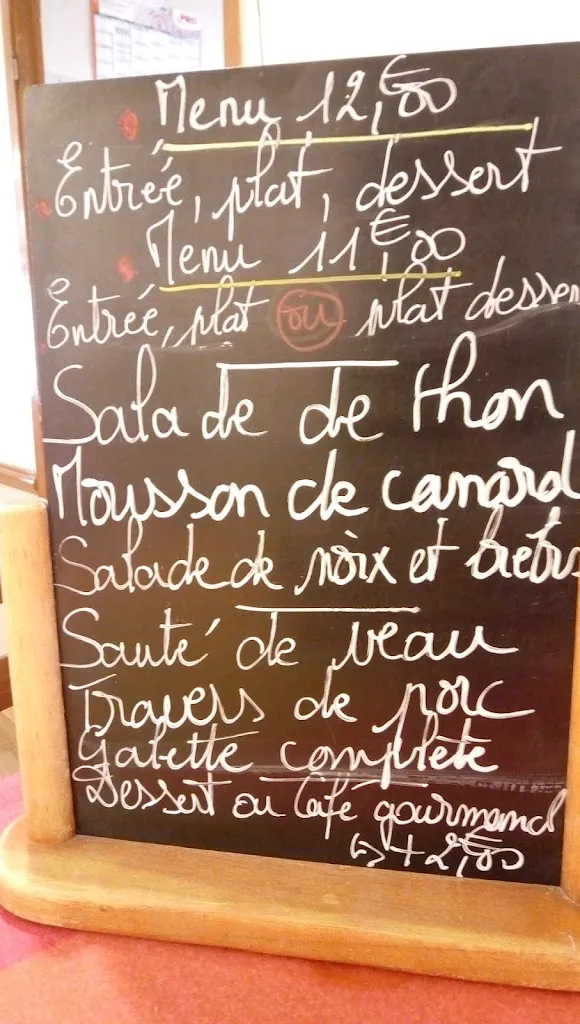 Menu 12,€00
Entrée, plat, dessert
Menu 11,€00
Entrée, plat ou plat desser
Salade de thon
Mousson de canard
Salade de noix et brebis
Sauté de veau
Travers de porc
Galette complète
Dessert ou Café gourmand
↳ + 2,€00